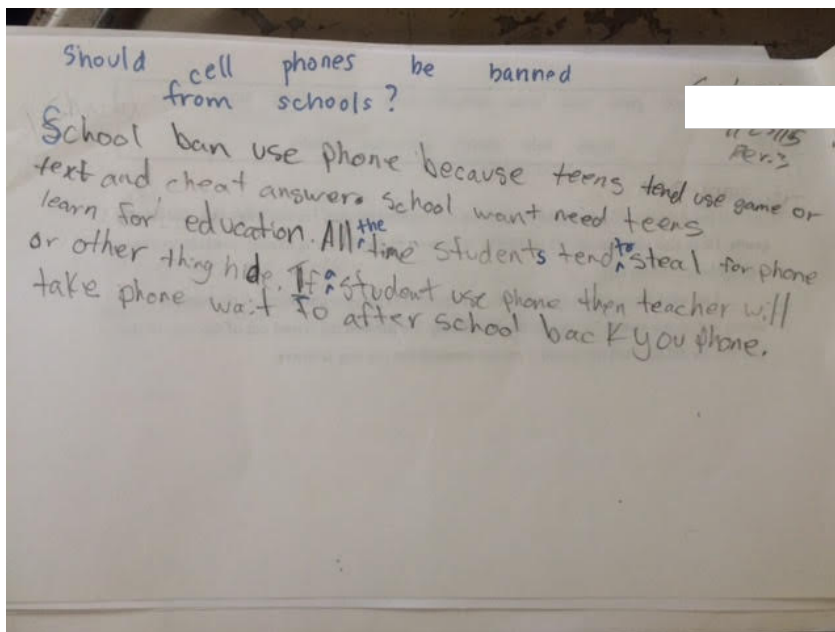 Should cell phones be banned
from schools?
Per.3
School ban use phone because teens tend use game or
text and cheat answer. School want need teens
learn for education. All the time students tend to steal for phone
or other thing hide. If a student use phone then teacher will
take phone wait to after school back you phone.